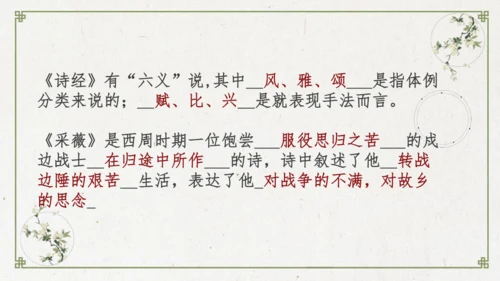 《诗经》有“六义”说,其中__风、雅、颂___是指体例
分类来说的；__赋、比、兴__是就表现手法而言。
《采薇》是西周时期一位饱尝___服役思归之苦___的戍
边战士__在归途中所作___的诗，诗中叙述了他__转战
边陲的艰苦___生活，表达了他_对战争的不满，对故乡
的思念_